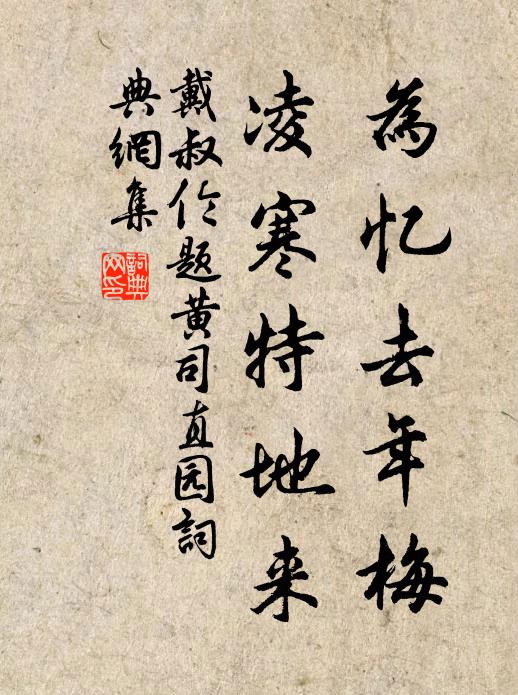 為忆去年梅
凌寒特地来
戴叔伦题黄司直园詞
典網集
詞典
网印